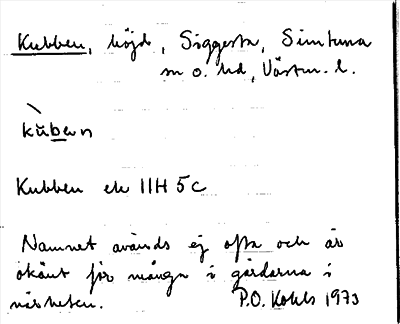 Kubben, höjd, Siggesta, Simtuna
sn o. hd, Västm. l.
kùben
Kubben ek 11H 5c
Namnet används ej ofta och är
okänt för många i gårdarna i
närheten. P.O. Kohls 1973